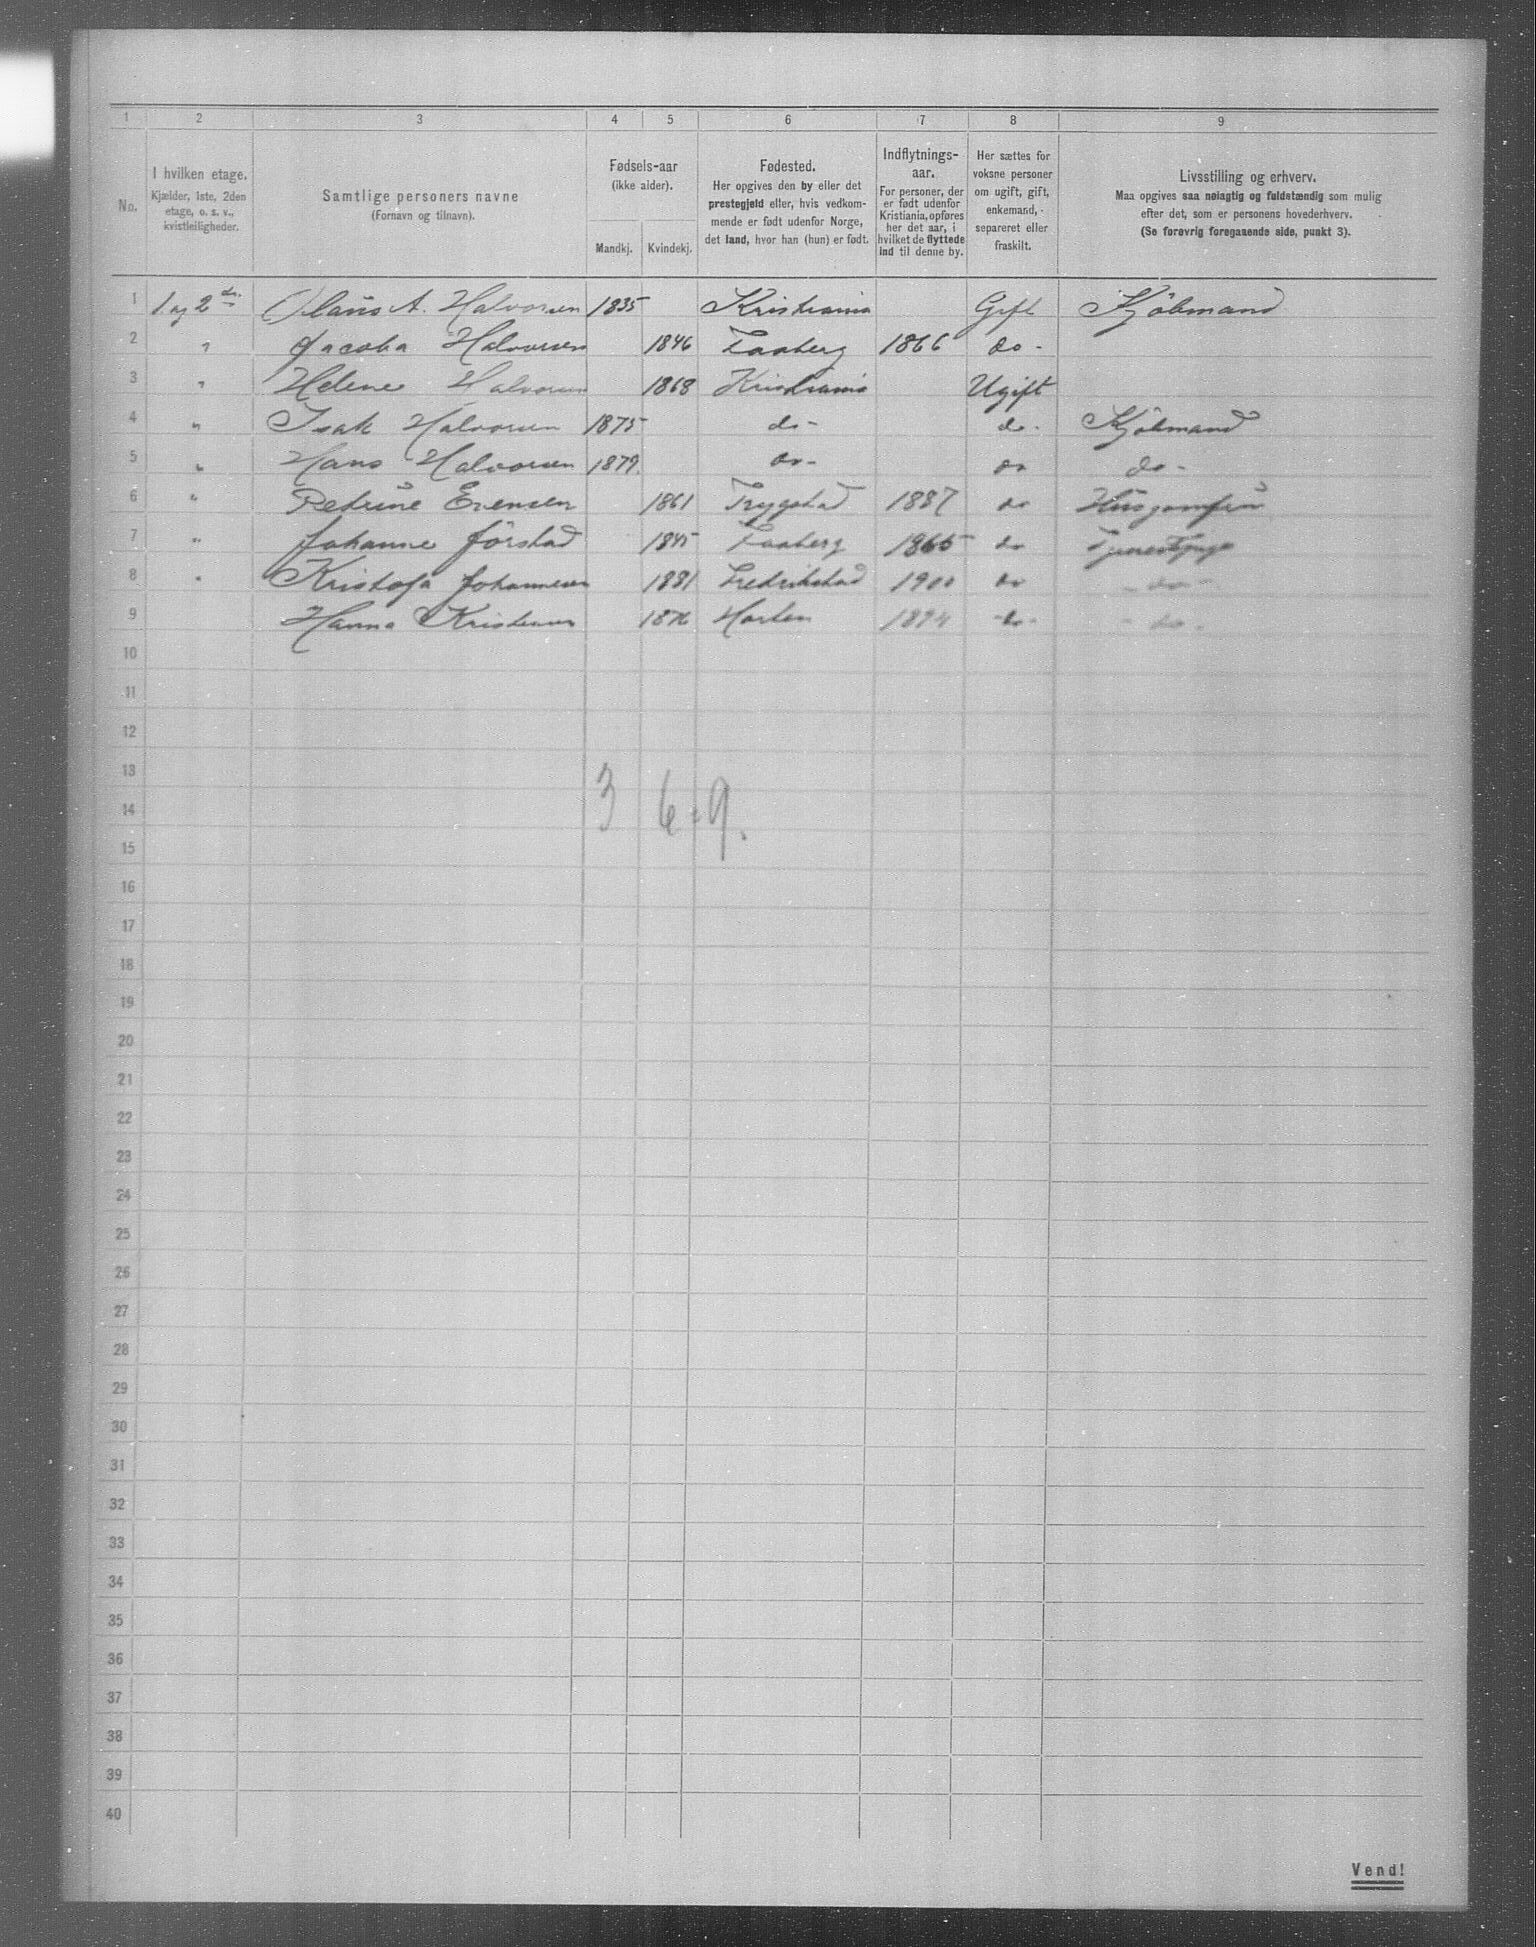 1 2 3 4 5 6 7 8 9
No.
I hvilken etage.
Kjælder, 1ste, 2den
etage, o. s. v.,
kvistleiligheder.
Samtlige personers navne
(Fornavn og tilnavn).
Fødsels-aar
(ikke alder).
Mandkj. Kvindekj.
Fødested.
Her opgives den by eller det
prestegjeld eller, hvis vedkom-
mende er født udenfor Norge,
det land, hvor han (hun) er født.
Indflytnings-
aar.
For personer, der
er født udenfor
Kristiania, opføres
her det aar, i
hvilket de flyttede
ind til denne by.
Her sættes for
voksne personer
om ugift, gift,
enkemand,
separeret eller
fraskilt.
Livsstilling og erhverv.
Maa opgives saa nøiagtig og fuldstændig som mulig
efter det, som er personens hovederhverv.
(Se forøvrig foregaaende side, punkt 3).
1 1 og 2 Olaus A. Halvorsen 1835 Kristiania Gift Kjöbmand
2 " Jacoba Halvorsen 1846 Faaberg 1866 do -
3 " Helene Halvorsen 1868 Kristiania Ugift
4 " Isak Halvorsen 1875 do - do - Kjöbmand
5 " Hans Halvorsen 1879 do - do do -
6 " Petrine Evensen 1861 Trygstad 1887 do Husjomfru
7 " Johanne Jörstad 1845 Faaberg 1865 do Tjenestpige
8 " Kristofa Johannesen 1881 Fredrikstad 1900 do - do -
9 Hanna Kristensen 1876 Horten 1894 - do - - do -
10
11
12
13
3 6 = 9.
14
15
16
17
18
19
20
21
22
23
24
25
26
27
28
29
30
31
32
33
34
35
36
37
38
39
40
Vend!